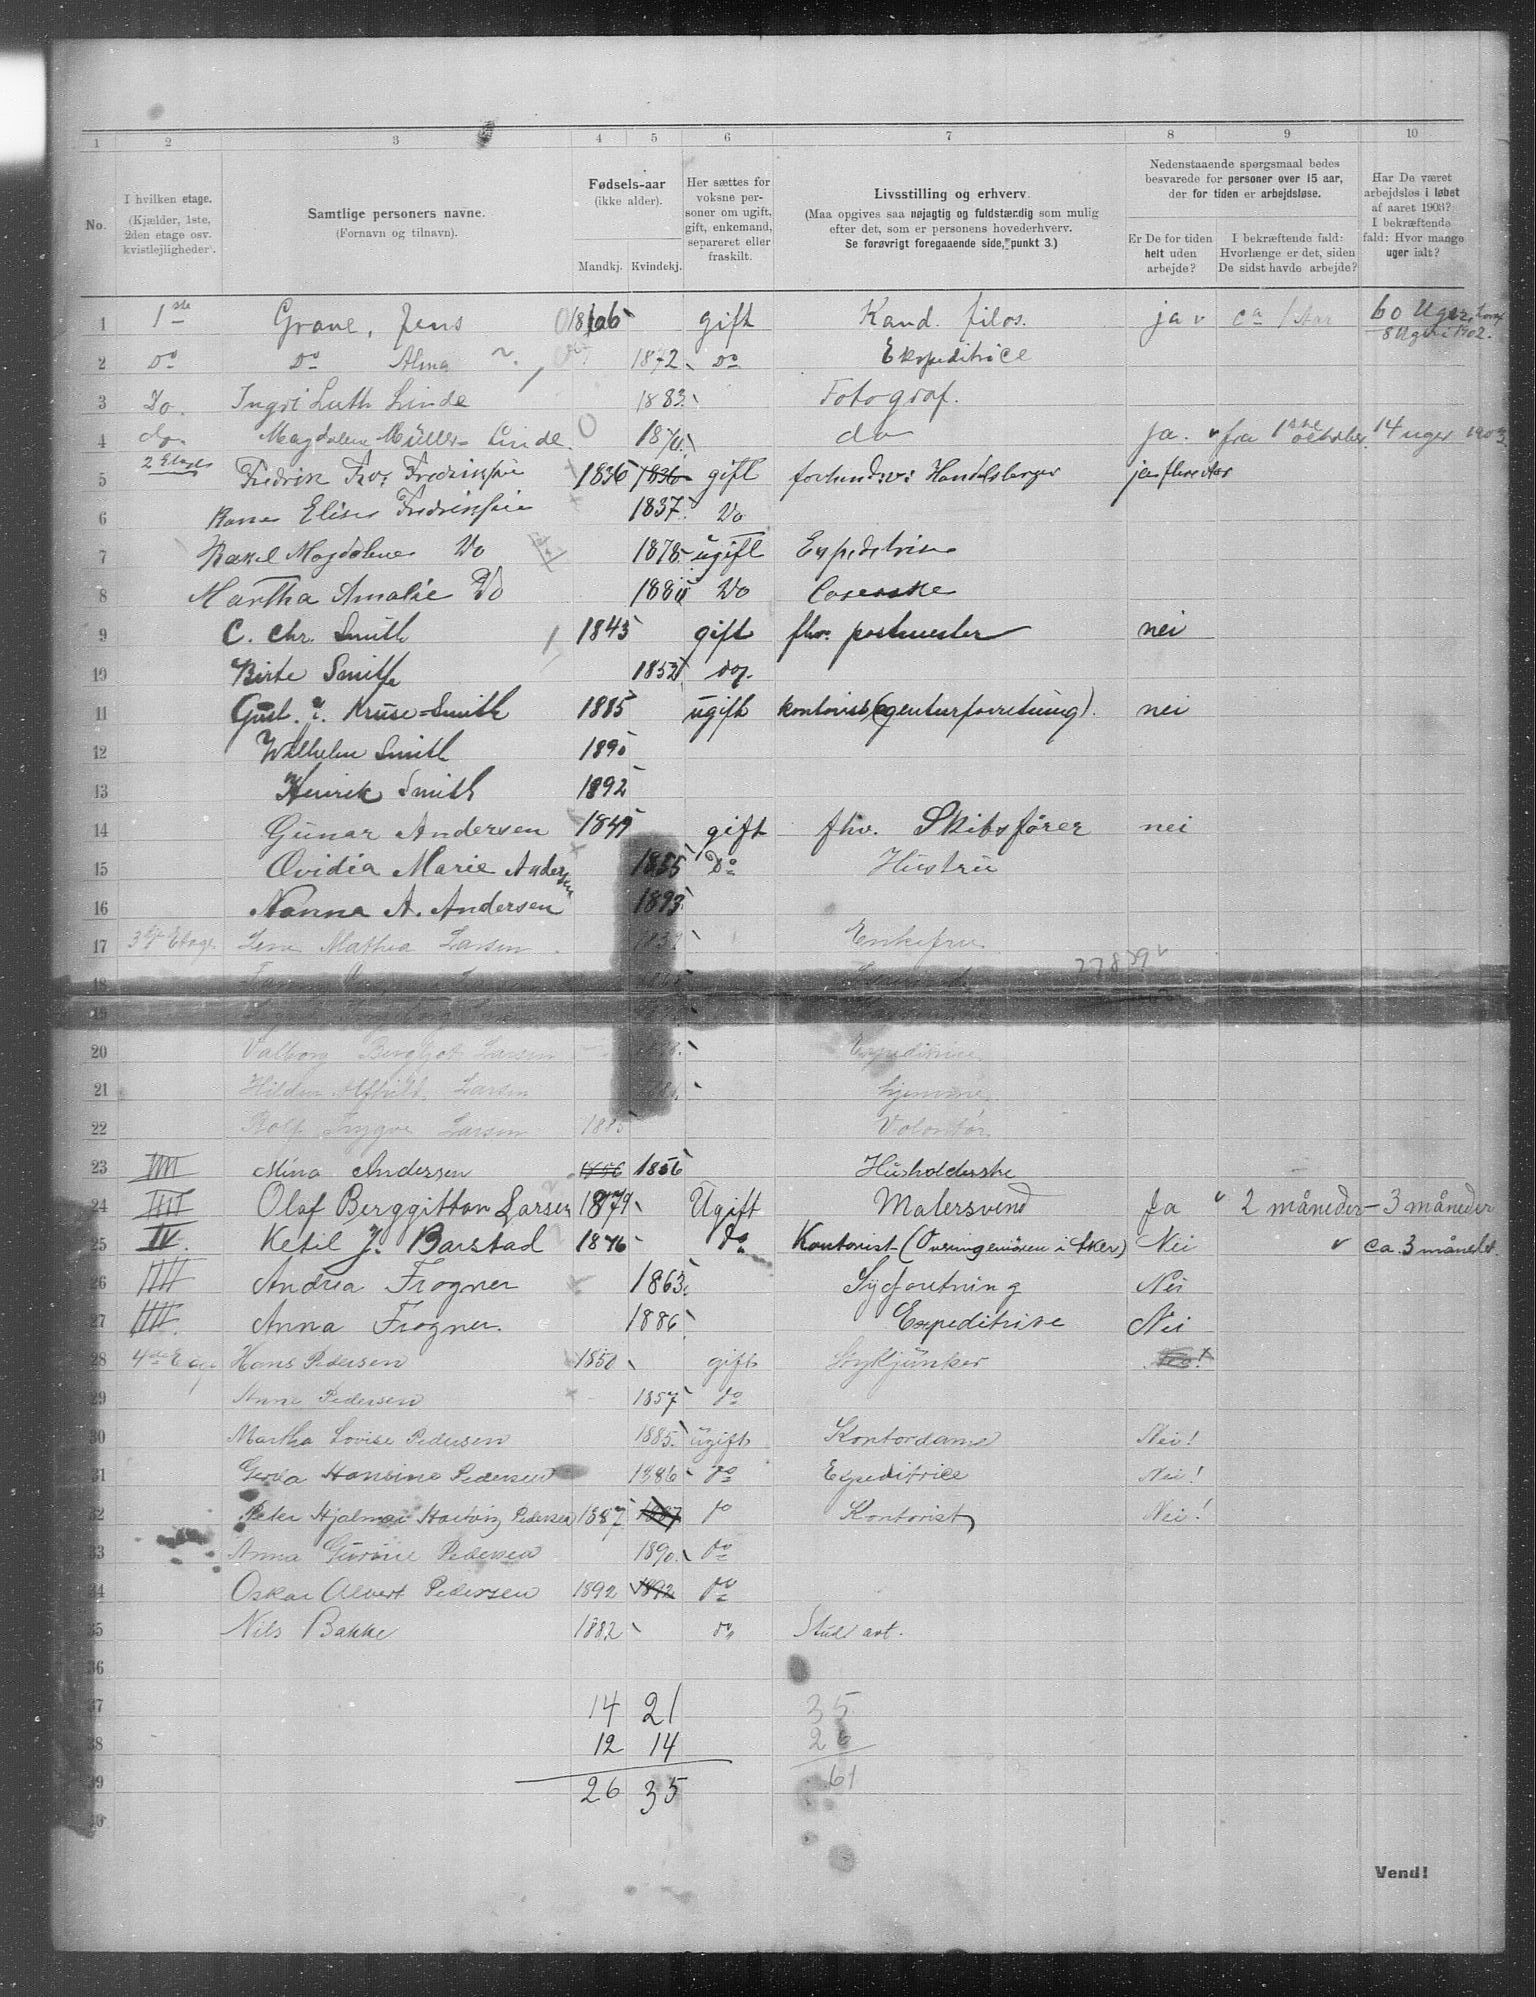 1 2 3 4 5 6 7 8 9 10
No.
I hvilken etage.
(Kjælder, 1ste, 2den etage osv. kvistlejligheder).
Samtlige personers navne.
(Fornavn og tilnavn).
Fødsels-aar
(ikke alder).
Mandkj. Kvindekj.
Her sættes for voksne personer om ugift, gift, enkemand, separeret eller fraskilt.
Livsstilling og erhverv.
(Maa opgives saa nøjagtig og fuldstærdig som mulig efter det, som er personens hovederhverv.
Se forøvrigt foregaaende side, punkt 3.)
Nedenstaaende spørgsmaal bedes besvarede for personer over 15 aar, der for tiden er arbejdsløse.
Er De for tiden helt uden arbejde?
I bekræftende fald: Hvorlænge er det, siden De sidst havde arbejde?
Har De været arbejdsløs i løbet af aaret 1903?
I bekræftende fald: Hvor mange uger ialt?
1 1ste Grane, Jens gift Kand. filos. ja ca 1 Aar 60 Uger
2 Do Do Alma 1872 Do Ekspeditrice
3 Do. Ingri Luth Linde 1883 Fotograf.
4 do. Magdalene Müller-Linde 1870 do ja. fra 1ste oktober 14 uger 1903
5 2 Etage Fredrik 1836 1836 gift Handelsborger ja
6 Elise 1837 Do
7 Magdalene Do 1878 ugift Expeditrise
8 Martha Amalie Do 1880 Do
9 C. Chr. Smith 1843 gift fhv. postmester nei
10 Birte Smith 1852 do.
11 Gust. Kruse-Smith 1885 ugift kontorist (agenturforretning). nei
12 Wilhelm Smith 1890
13 Henrik Smith 1892
14 Gunar Andersen 1849 gift fhv. Skibsfører nei
15 Ovidia Marie Andersen 1855 Do Hustru
16 Nanna A. Andersen 1893
17 3die Etage Mathea Larsen 1837 Enkefru
18 Larsen
19
20 Valborg Bergljot Larsen Expeditrice
21 Hilden Alfhild Larsen hjemme
22 Rolf Trygve Larsen 1885 Volontør
23 IIII Mina Andersen 1856 1856 Husholderske
24 IIII Olaf Berggitton Larsen 1879 Ugift Malersvend Ja 2 måneder - 3 måneder
25 IV. Ketil J. Barstad 1876 do Kontorist (Overingeniøren i Aker) Nei ca. 3 måneder.
26 IIII Andrea Frogner 1863 Syforetning Nei
27 IIII. Anna Frogner. 1886 Expeditrise Nei
28 4de Etage Hans Pedersen 1850 gift Stykjunker
29 Anne Pedersen 1857 do
30 Martha Lovise Pedersen 1885. ugift Kontordame Nei!
31 Gerda Hansine Pedersen 1886 do Expeditrice Nei!
32 Peter Hjalmar Hartvig Pedersen 1887 1887 do Kontorist Nei!
33 Anna Gurine Pedersen 1890. do
34 Oskar Alvert Pedersen 1892 1892 do
35 Nils Bakke 1882 do Stud art.
36
37 14 21 35
38 12 14 26
39 26 35 61
40
Vend!